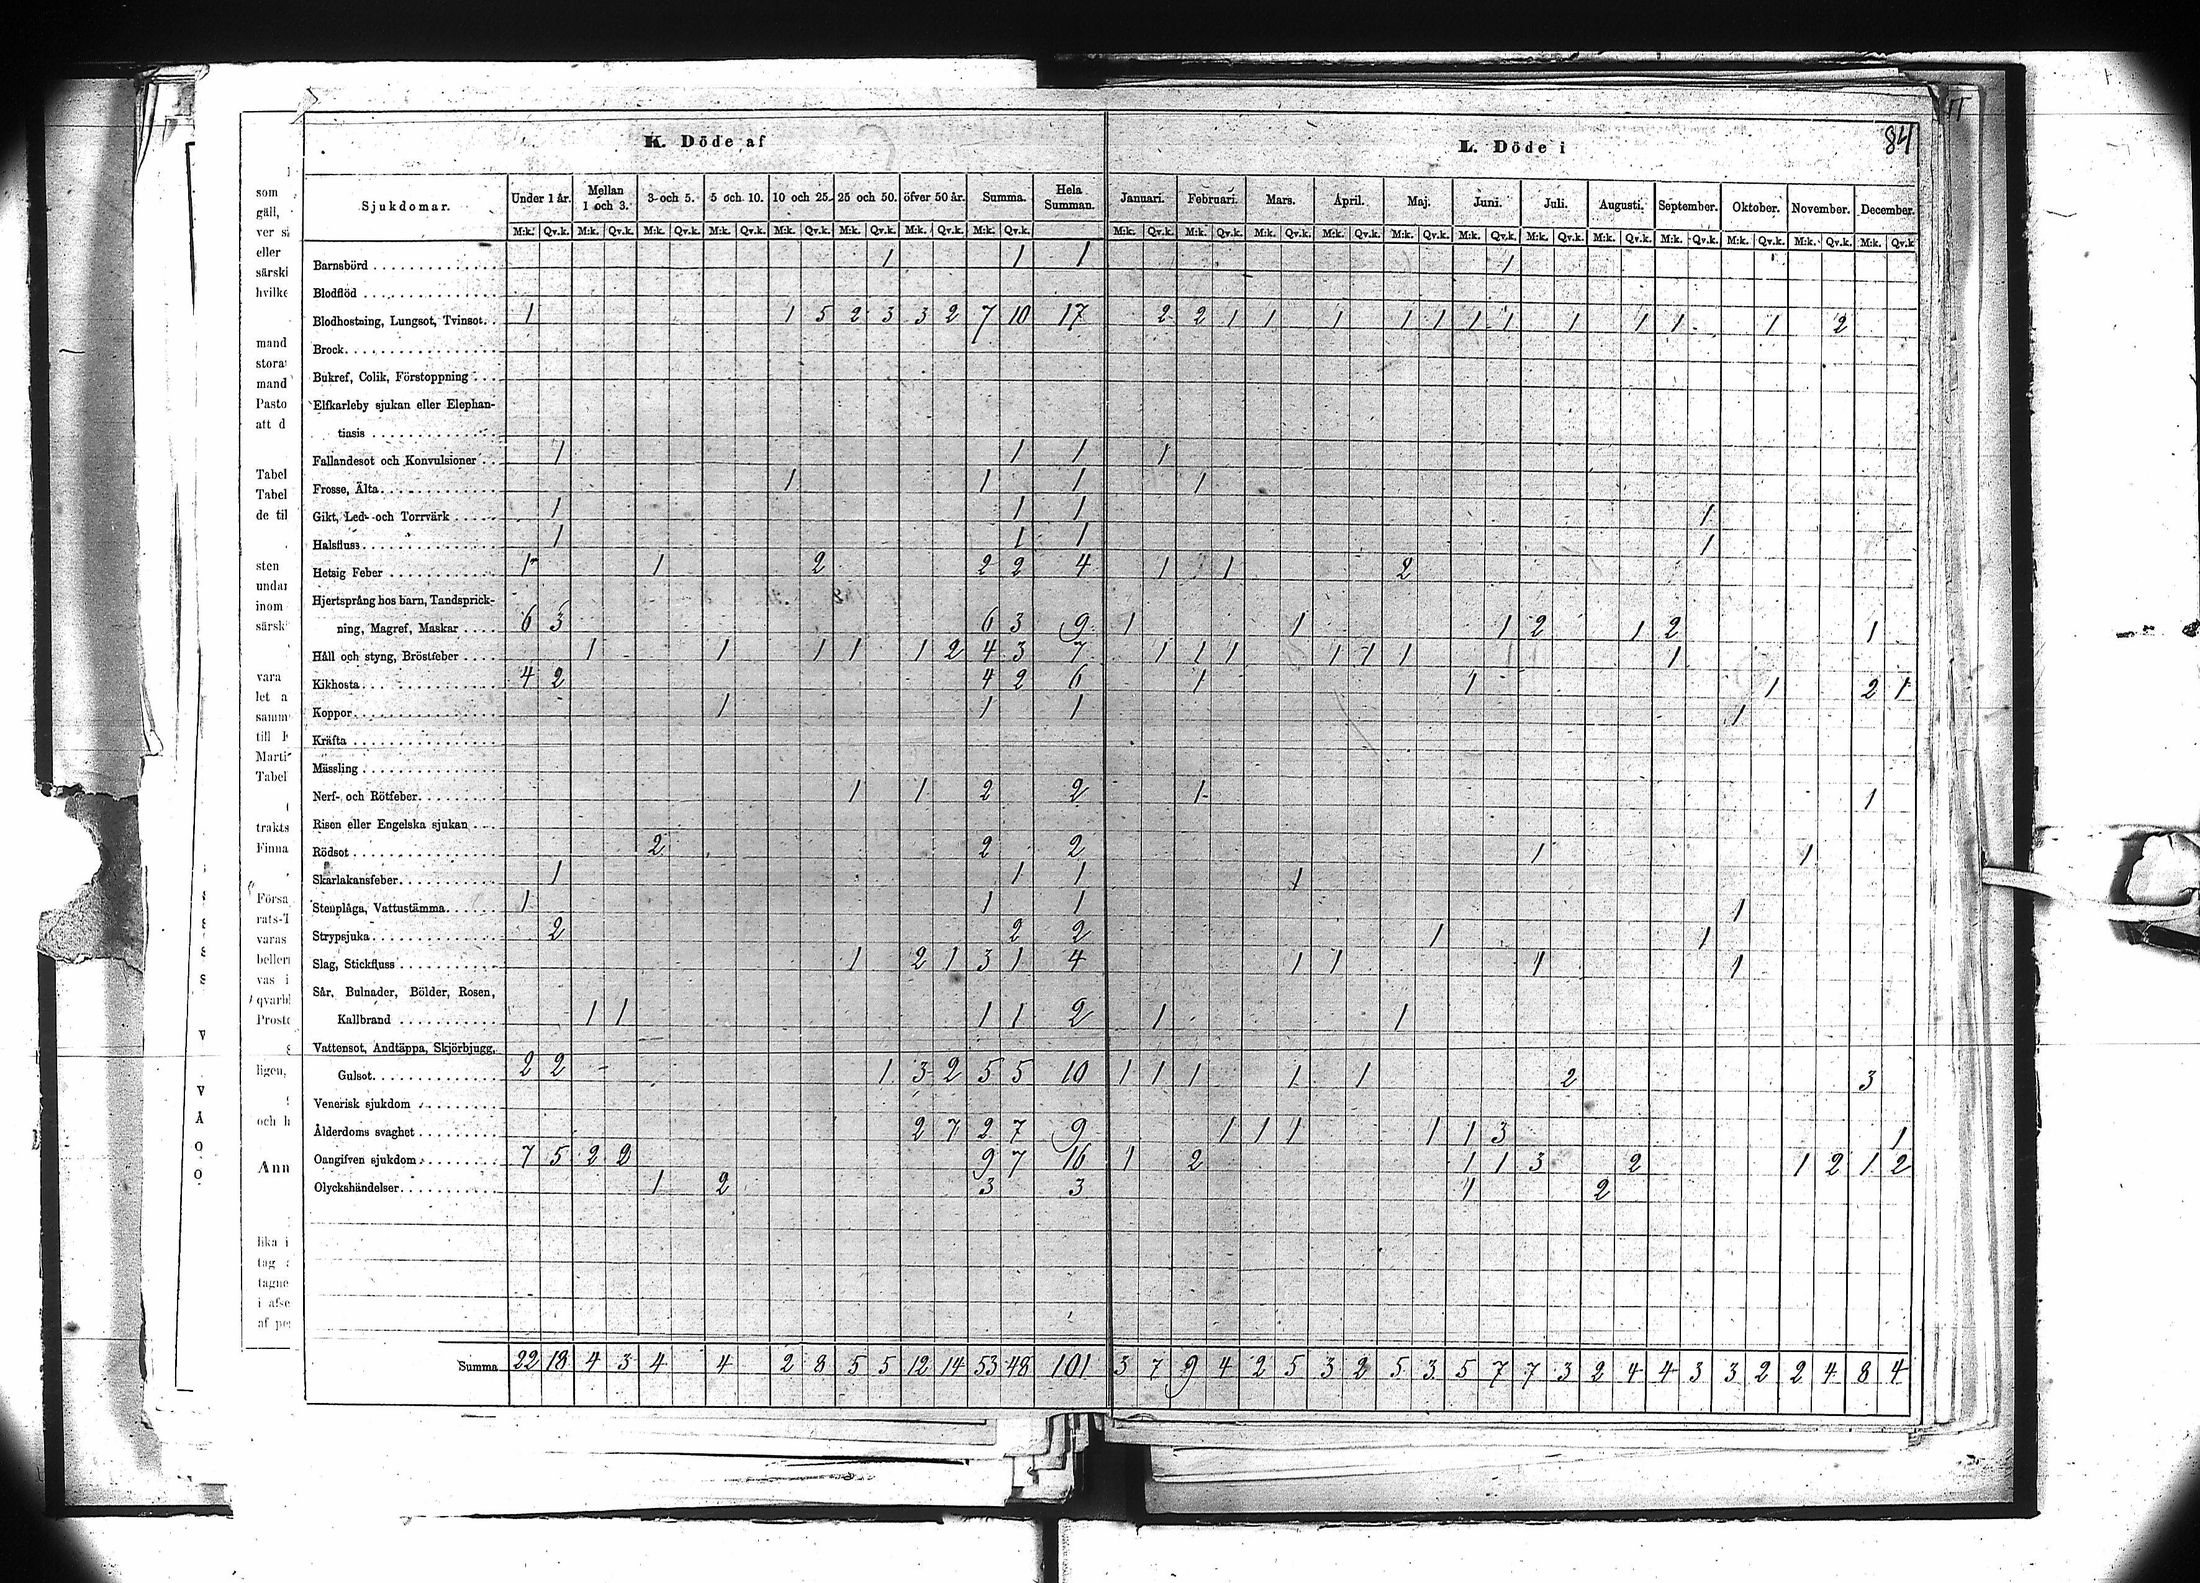 84
K. Döde af
L. Döde i
Sjukdomar. Under 1 år. Mellan 1 och 3. 3 och 5. 5 och 10. 10 och 25. 25 och 50. öfver 50 år. Summa. Hela Summan. Januari. Februari. Mars. April. Maj. Juni. Juli. Augusti. September. Oktober. November. December.
M:k. Qv.k. M:k. Qv.k. M:k. Qv.k. M:k. Qv.k. M:k. Qv.k. M:k. Qv.k. M:k. Qv.k. M:k. Qv.k. M:k. Qv.k. M:k. Qv.k. M:k. Qv.k. M:k. Qv.k. M:k. Qv.k. M:k. Qv.k. M:k. Qv.k. M:k. Qv.k. M:k. Qv.k. M:k. Qv.k. M:k. Qv.k. M:k. Qv.k
Barnsbörd 1 1 1 1
Blodflöd
Blodhostning, Lungsot, Tvinsot 1 1 5 2 3 3 2 7 10 17 2 2 1 1 1 1 1 1 1 1 1 1 1 2
Brock
Bukref, Colik, Förstoppning
Elfkarleby sjukan eller Elephan-
tiasis
Fallandesot och Konvulsioner 1 1 1 1
Frosse, Älta 1 1 1 1
Gikt, Led- och Torrvärk 1 1 1 1
Halsfluss 1 1 1 1
Hetsig Feber 1 1 2 2 2 4 1 1 2
Hjertsprång hos barn, Tandsprick-
ning, Magref, Maskar 6 3 6 3 9 1 1 1 2 1 2 1
Håll och styng, Bröstfeber 1 1 1 1 1 2 4 3 7 1 1 1 1 1 1 1
Kikhosta 4 2 4 2 6 1 1 1 2 1
Koppor 1 1 1 1
Kräfta
Mässling
Nerf- och Rötfeber 1 1 2 2 1 1
Risen eller Engelska sjukan
Rödsot 2 2 2 1 1
Skarlakansfeber 1 1 1 1
Stenplåga, Vattustämma 1 1 1 1
Strypsjuka 2 2 2 1 1
Slag, Stickfluss 1 2 1 3 1 4 1 1 1 1
Sår, Bulnader, Bölder, Rosen,
Kallbrand 1 1 1 1 2 1 1
Vattensot, Andtäppa, Skjörbjugg,
Gulsot 2 2 1 3 2 5 5 10 1 1 1 1 1 2 3
Venerisk sjukdom
Ålderdoms svaghet 2 7 2 7 9 1 1 1 1 1 3 1
Oangifven sjukdom 7 5 2 2 9 7 16 1 2 1 1 3 2 1 2 1 2
Olyckshändelser 1 2 3 3 1 2
Summa 22 18 4 3 4 4 2 8 5 5 12 14 53 48 101 3 7 9 4 2 5 3 2 5 3 5 7 7 3 2 4 4 3 3 2 2 4 8 4
som
gäll,
ver
eller
särski
hvilke
mand
stora
mand
Pasto
att d
Tabel
Tabel
de til
sten
undar
inom
särsk
vara
let a
samm
till
Marti
Tabel
trakts
Finna
Försa
rats-
varas
beller
vas i
qvarbl
Prosto
ligen,
och h
Ann
lika i
tag
tagne
i afse
af pe